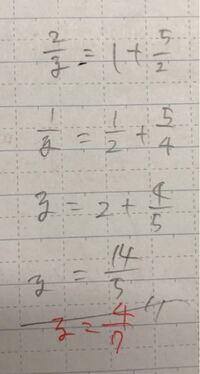 2/z = 1 + 5/2
1/z = 1/2 + 5/4
z = 2 + 4/5
z = 14/5
z = 4/7